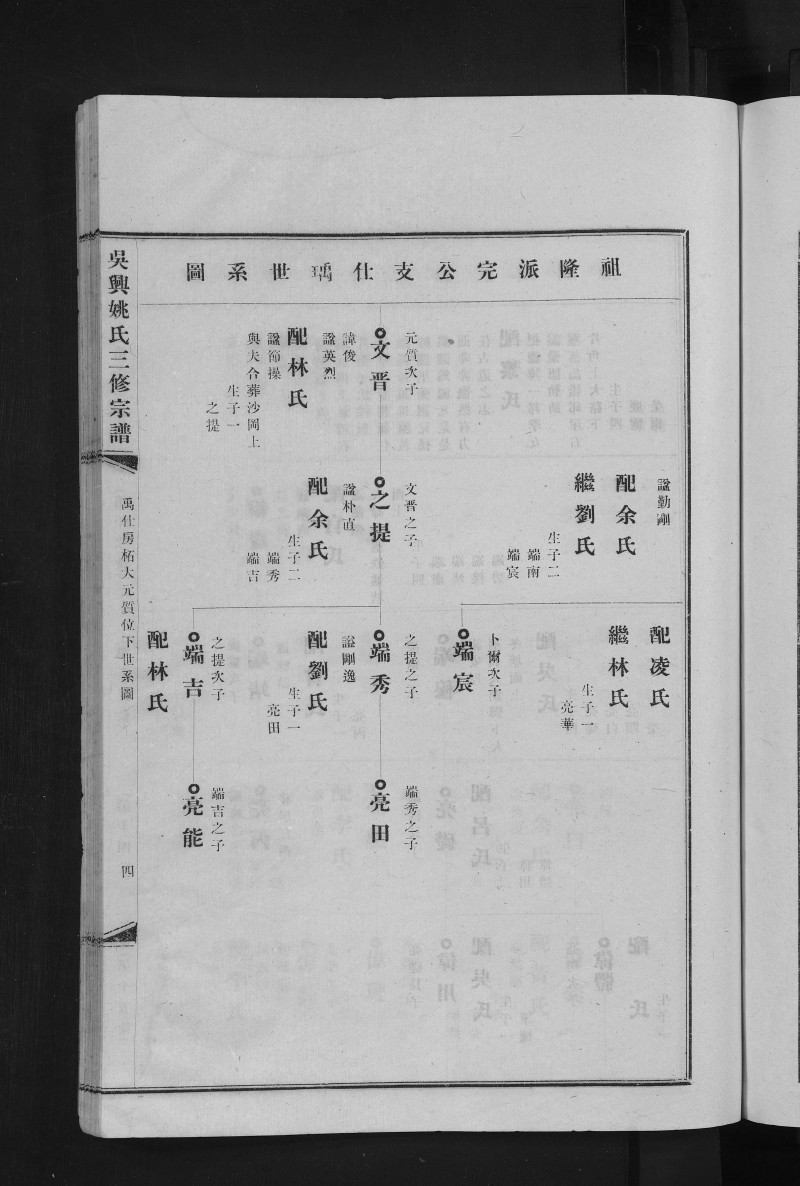 祖隆派完公支仕瑀世系圖
元質次子
文晋
諱俊
諡英烈
配林氏
諡節操
與夫合葬沙岡上
生子一
之提
諡勤剛
配余氏
繼劉氏
生子二
端南
端宸
文晋之子
之提
諡朴直
配余氏
生子二
端秀
端吉
配凌氏
繼林氏
生子一
亮華
卜爾次子
端宸
之提之子
端秀
諡剛逸
配劉氏
生子一
亮田
之提次子
端吉
配林氏
端秀之子
亮田
端吉之子
亮能
吳興姚氏三修宗譜
禹仕房柘大元質位下世系圖
四